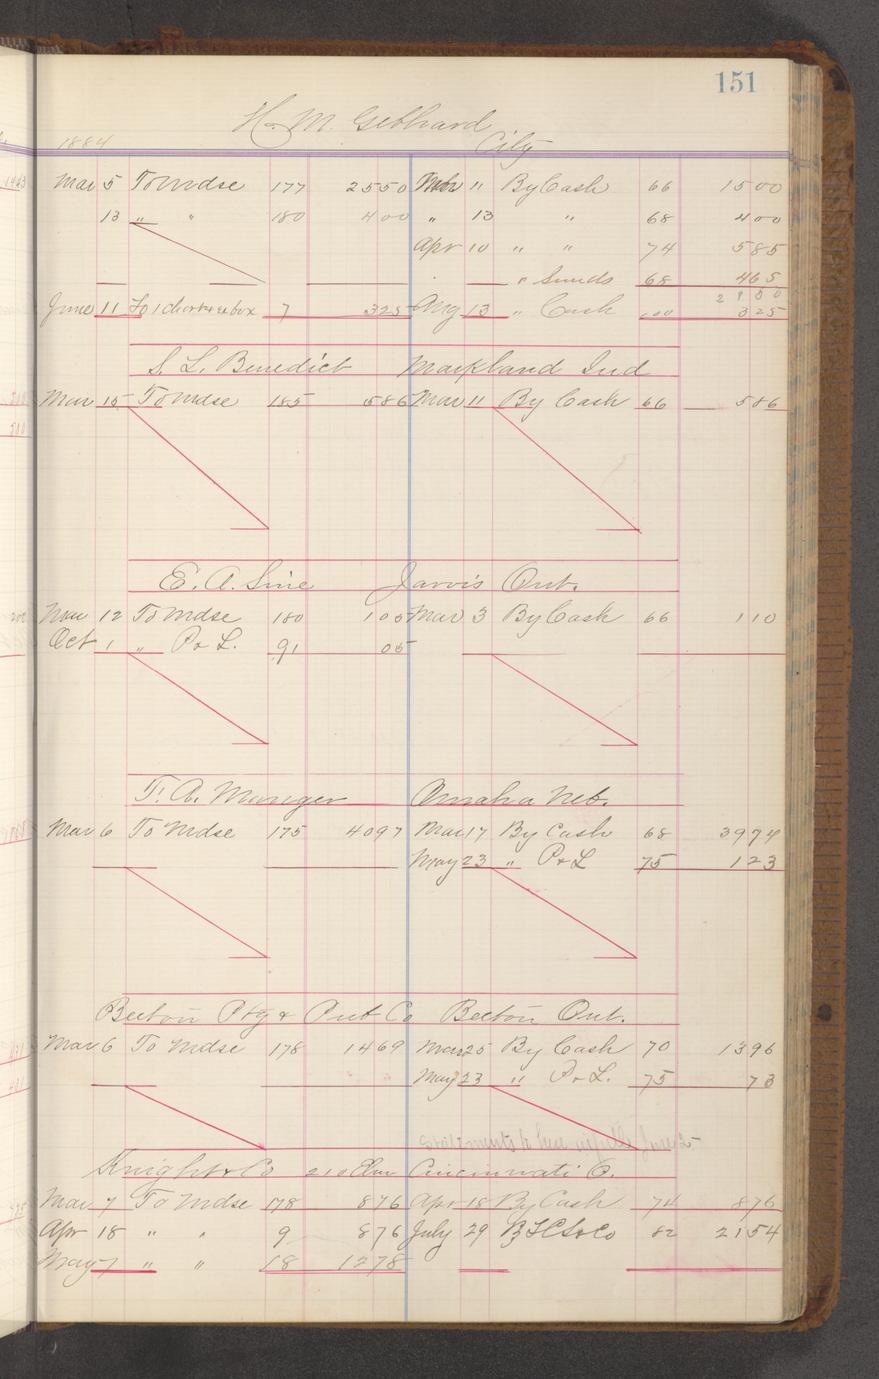 151
H. M. Gebhard
1884 City
Mar 5 To Mdse 177 2550 Mar 11 By Cash 66 1500
13 " " 180 400 " 13 " 68 400
Apr 10 " " 74 585
" Sunds 68 465
2950
June 11 To 1 box 7 325 Aug 13 " Cash 325
S. L. Benedict Markland Ind
Mar 15 To Mdse 185 586 Mar 11 By Cash 66 586
E. A. Sine Jarvis Ont.
Mar 12 To Mdse 180 105 Mar 3 By Cash 66 110
Oct 1 " P & L. 91 05
T. A. Manger Omaha Neb.
Mar 6 To Mdse 175 4097 Mar 17 By Cash 68 3974
May 23 " P & L 75 123
Beeton Ptg & Pub Co Beeton Ont.
Mar 6 To Mdse 178 1469 Mar 25 By Cash 70 1396
May 23 " P & L. 75 73
Knight & Co 210 Elm Cincinnati O.
Mar 7 To Mdse 178 876 Apr 18 By Cash 74 876
Apr 18 " " 9 876 July 29 82 2154
May 7 " " 18 1278